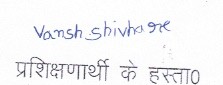 Vansh Shivhare
प्रशिक्षणार्थी के हस्ता0